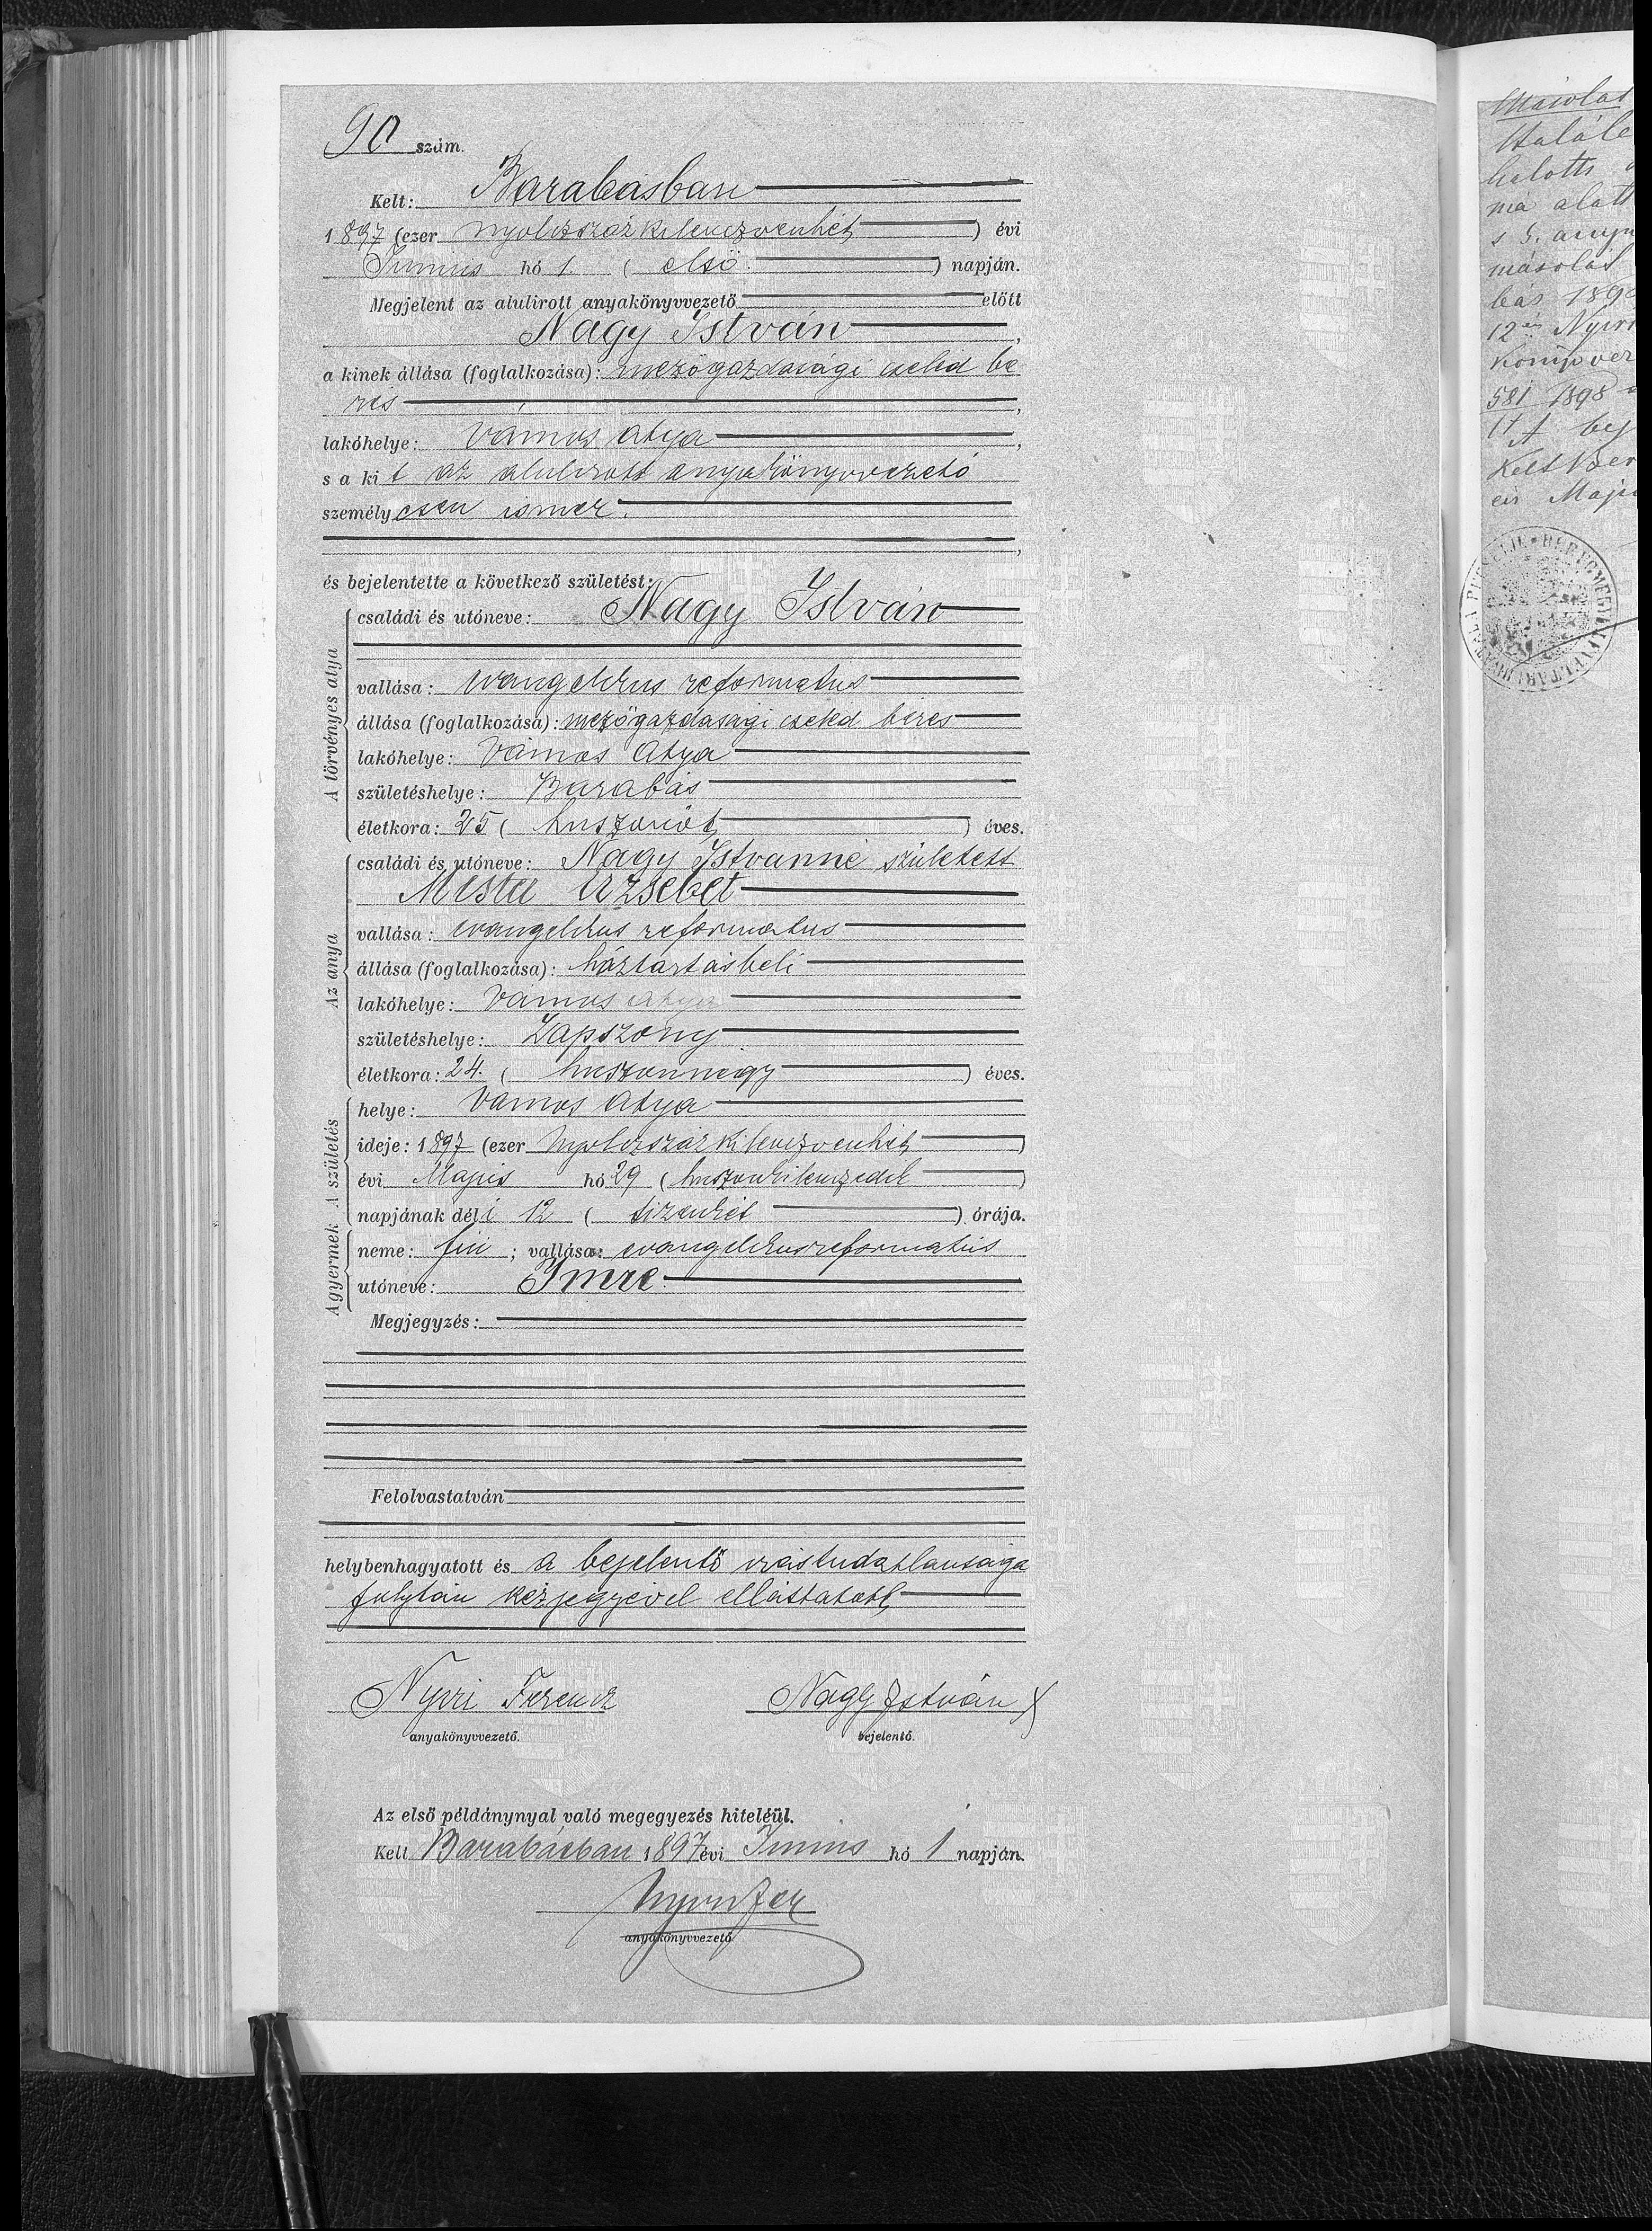 90 szám.
Kelt: Barabásban
1897 (ezer nyolczszázkilenczvenhét) évi
Junius hó 1. (első.) napján.
Megjelent az alulirott anyakönyvvezető előtt
Nagy István,
a kinek állása (foglalkozása): mezőgazdasági cseléd bé
res,
lakóhelye: Vámos Atya,
s a kit az alulirott anyakönyvvezető
személyesen ismer.
és bejelentette a következő születést:
A törvényes atya
családi és utóneve: Nagy István
vallása: evangelikus reformatus
állása (foglalkozása): mezőgazdasági cseled béres
lakóhelye: Vámos Atya
születéshelye: Barabás
életkora: 25 (huszonöt) éves.
Az anya
családi és utóneve: Nagy Istvanné született
Erzsebet
vallása: evangelikus reformatus
állása (foglalkozása): háztartásbeli
lakóhelye: Vámos Atya
születéshelye: Zápszony
életkora: 24. (huszonnégy) éves.
A születés
helye: Vámos Atya
ideje: 1897 (ezer nyolczszázkilenczvenhét)
évi Majus hó 29 (huszonkilenczedik)
napjának déli 12 (tizenkét) órája.
A gyermek
neme: fiú; vallása: evangelikus reformatus
utóneve: Imre.
Megjegyzés:
Felolvastatván
helybenhagyatott és a bejelentő irástudatlansága
folytán kézjegyével elláttatott
Nyiri Ferencz
anyakönyvvezető.
Nagy István X
bejelentő.
Az első példánynyal való megegyezés hiteléül.
Kelt Barabásban 1897 évi Junius hó 1 napján.
Nyiri Fer
anyakönyvvezető
Másolat
helotti
má alatt
másolat
bás 189
12 én Nyiri
könyvver
581 1898
Kelt Ber